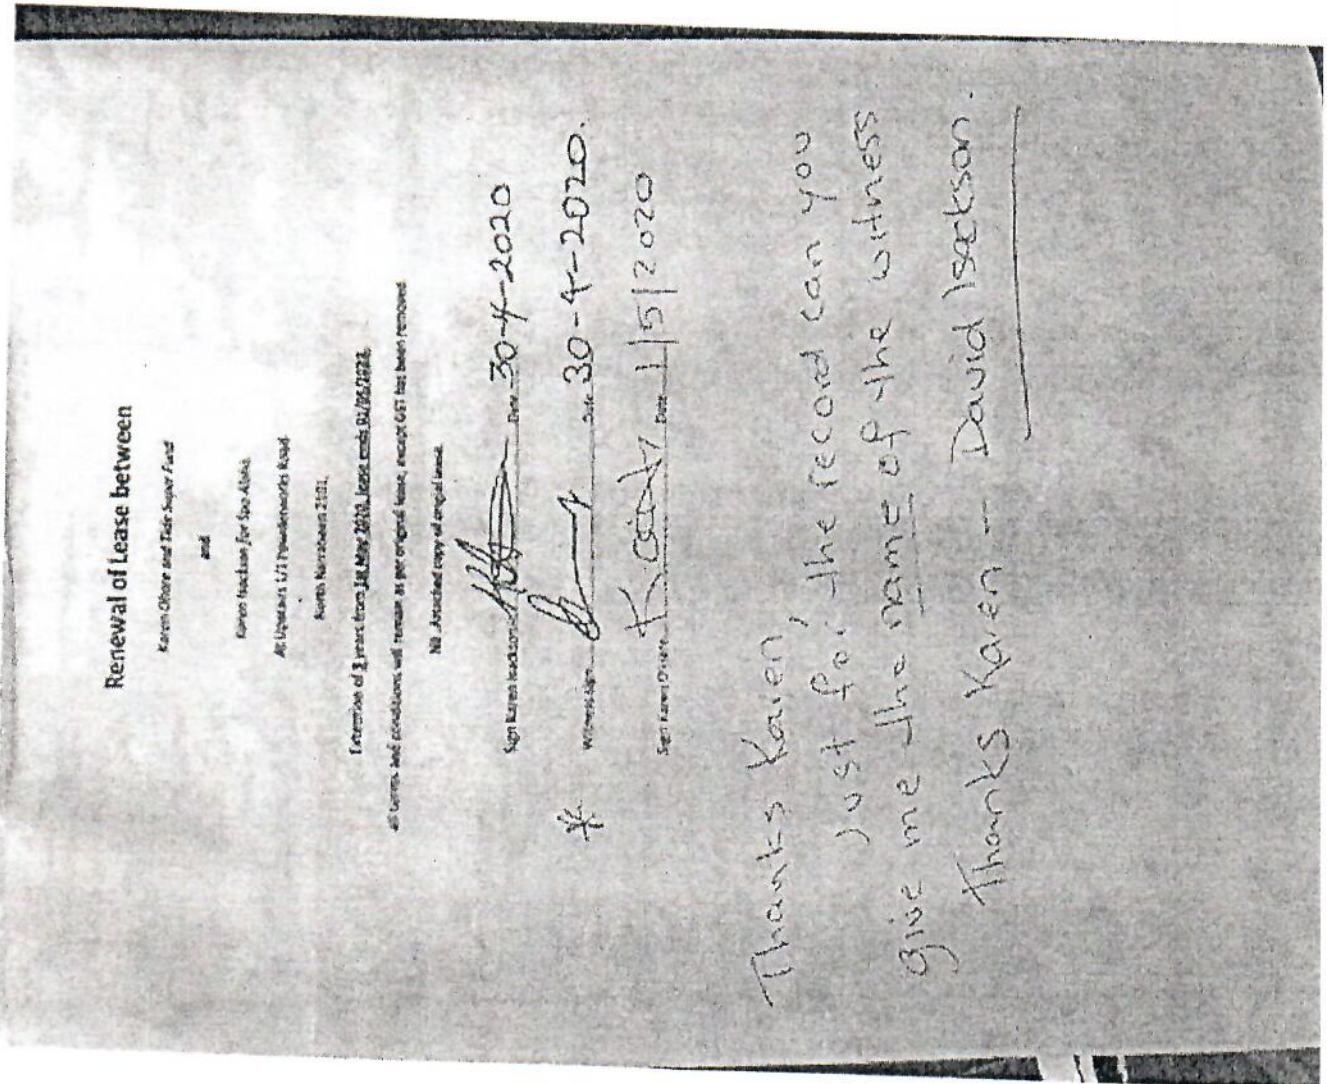 Renewal of Lease between
Karen Ohare and Tide Super Fund
and
Karen Isackson for Spa-Abika
At Upstairs 1/1 Powderworks Road
North Narrabeen 2101.
Extension of years from 1st May 2020, lease ends
all terms and conditions will remain as per original lease, except GST has been removed.
NB. Attached copy of original lease.
Sign Karen Isackson Date 30-4-2020
* Witness Sign Date 30-4-2020.
Sign Karen O'Hare Date 1/5/2020
Thanks Karen,
Just for the record can you
give me the name of the witness
Thanks Karen - David Isackson.